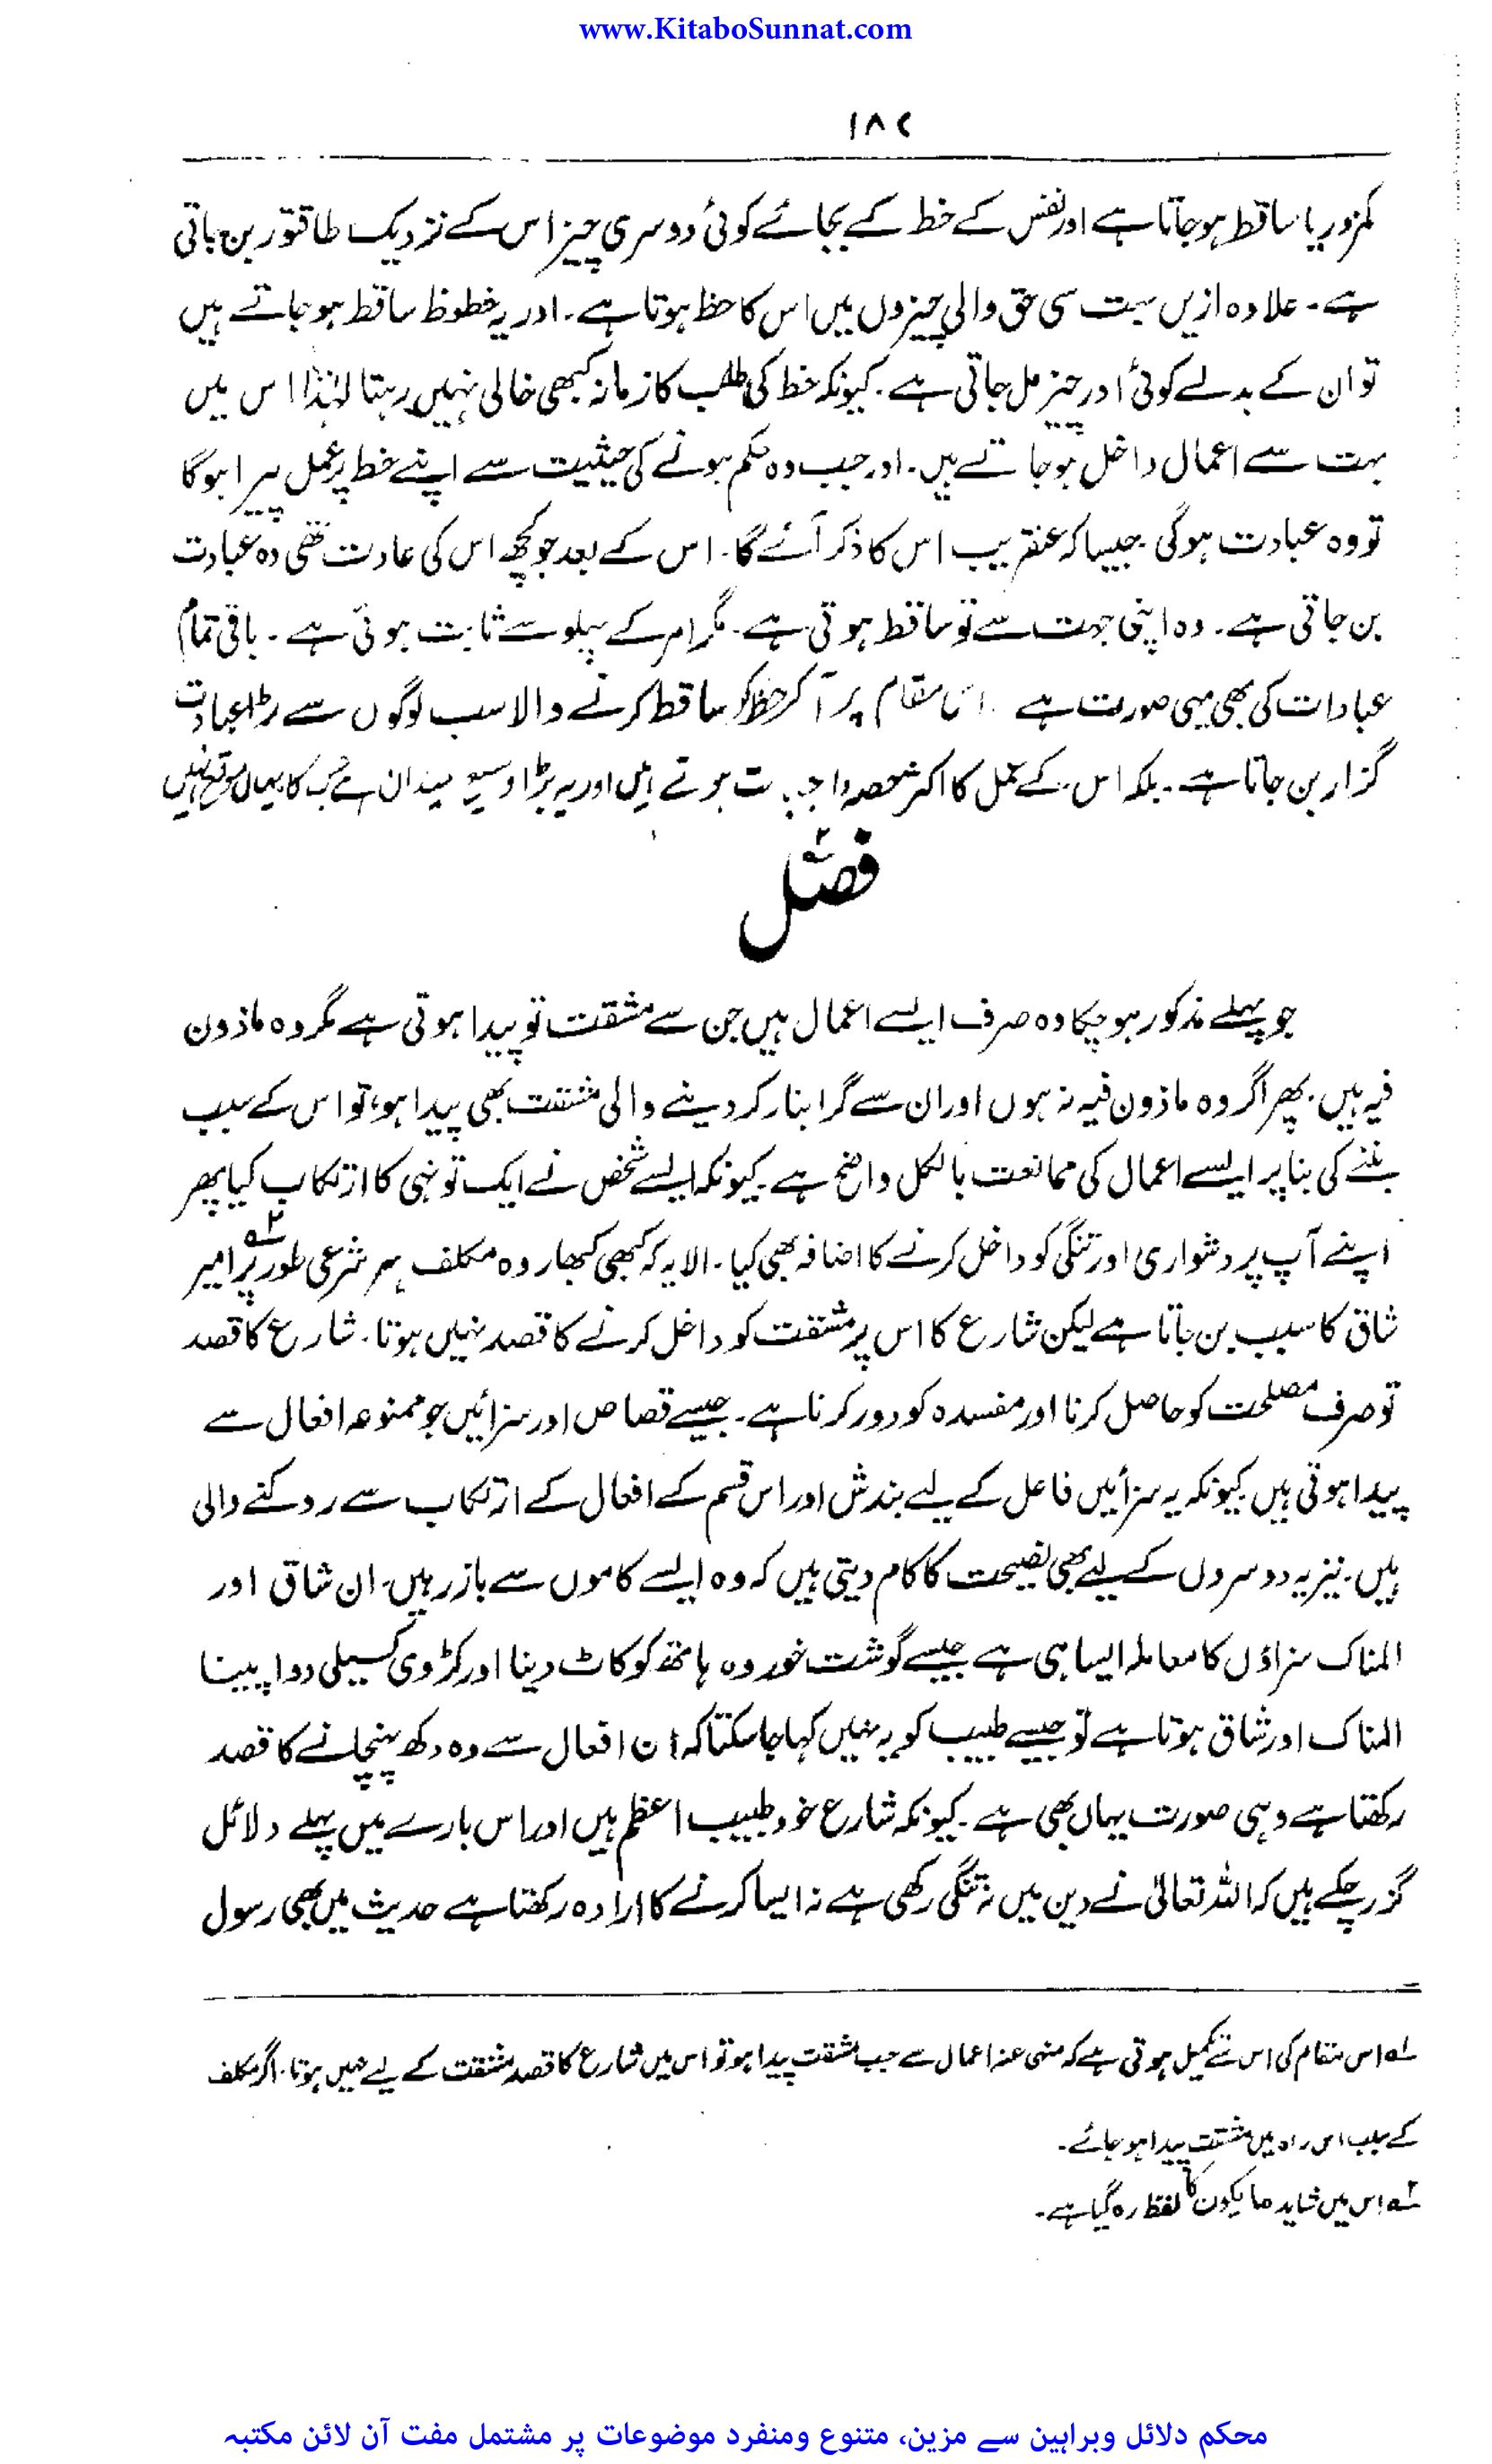 www.KitaboSunnat.com
۱۸۷
کمزور یا ساقط ہو جاتا ہے اور نفس کے خط کے بجائے کوئی دوسری چیز اس کے نزدیک طاقتور بن جاتی
ہے۔ علاوہ ازیں بہت سی حق والی چیزوں میں اس کا حظ ہوتا ہے۔ اور یہ خطوظ ساقط ہو جاتے ہیں
تو ان کے بدلے کوئی اور چیز مل جاتی ہے۔ کیونکہ خط کی طلب کا زمانہ کبھی خالی نہیں رہتا لہٰذا اس میں
بہت سے اعمال داخل ہو جاتے ہیں۔ اور جب وہ حکم ہونے کی حیثیت سے اپنے خط پر عمل پیرا ہوگا
تو وہ عبادت ہوگی جیسا کہ عنقریب اس کا ذکر آئے گا۔ اس کے بعد جو کچھ اس کی عادت تھی وہ عبادت
بن جاتی ہے۔ وہ اپنی جہت سے تو ساقط ہوتی ہے۔ مگر امر کے پہلو سے ثابت ہوتی ہے۔ باقی تمام
عبادات کی بھی یہی صورت ہے۔ اس مقام پر آ کر حظ کو ساقط کرنے والا سب لوگوں سے بڑا عبادت
گزار بن جاتا ہے۔ بلکہ اس کے عمل کا اکثر حصہ واجبات ہوتے ہیں اور یہ بڑا وسیع میدان ہے جس کا یہاں موقع نہیں
فصل
جو پہلے مذکور ہو چکا وہ صرف ایسے اعمال ہیں جن سے مشقت تو پیدا ہوتی ہے مگر وہ ماذون
فیہ ہیں۔ پھر اگر وہ ماذون فیہ نہ ہوں اور ان سے گرانبار کر دینے والی مشقت بھی پیدا ہو، تو اس کے سبب
بننے کی بنا پر ایسے اعمال کی ممانعت بالکل واضح ہے۔ کیونکہ ایسے شخص نے ایک تو نہی کا ارتکاب کیا پھر
اپنے آپ پر دشواری اور تنگی کو داخل کرنے کا اضافہ بھی کیا۔ الا یہ کہ کبھی کبھار وہ مکلف پر شرعی طور پر۲ امیر
شاق کا سبب بن جاتا ہے لیکن شارع کا اس پر مشقت کو داخل کرنے کا قصد نہیں ہوتا۔ شارع کا قصد
تو صرف مصلحت کو حاصل کرنا اور مفسدہ کو دور کرنا ہے۔ جیسے قصاص اور سزائیں جو ممنوعہ افعال سے
پیدا ہوتی ہیں کیونکہ یہ سزائیں فاعل کے لیے بندش اور اس قسم کے افعال کے ارتکاب سے روکنے والی
ہیں۔ نیز یہ دوسروں کے لیے بھی نصیحت کا کام دیتی ہیں کہ وہ ایسے کاموں سے باز رہیں۔ ان شاق اور
المناک سزاؤں کا معاملہ ایسا ہی ہے جیسے گوشت خوردہ ہاتھ کو کاٹ دینا اور کڑوی کسیلی دوا پینا
المناک اور شاق ہوتا ہے تو جیسے طبیب کو یہ نہیں کہا جا سکتا کہ ان افعال سے وہ دکھ پہنچانے کا قصد
رکھتا ہے وہی صورت یہاں بھی ہے۔ کیونکہ شارع خود طبیب اعظم ہیں اور اس بارے میں پہلے دلائل
گزر چکے ہیں کہ اللہ تعالیٰ نے دین میں نہ تنگی رکھی ہے نہ ایسا کرنے کا ارادہ رکھتا ہے حدیث میں بھی رسول
۱؎ اس مقام کی اس سے تکمیل ہوتی ہے کہ منہی عنہ اعمال سے جب مشقت پیدا ہو تو اس میں شارع کا قصد مشقت کے لیے نہیں ہوتا۔ اگر مکلف
کے سبب اس راہ میں مشقت پیدا ہو جائے۔
۲؎ اس میں شاید ما یکون کا لفظ رہ گیا ہے۔
محکم دلائل وبراہین سے مزین، متنوع ومنفرد موضوعات پر مشتمل مفت آن لائن مکتبہ